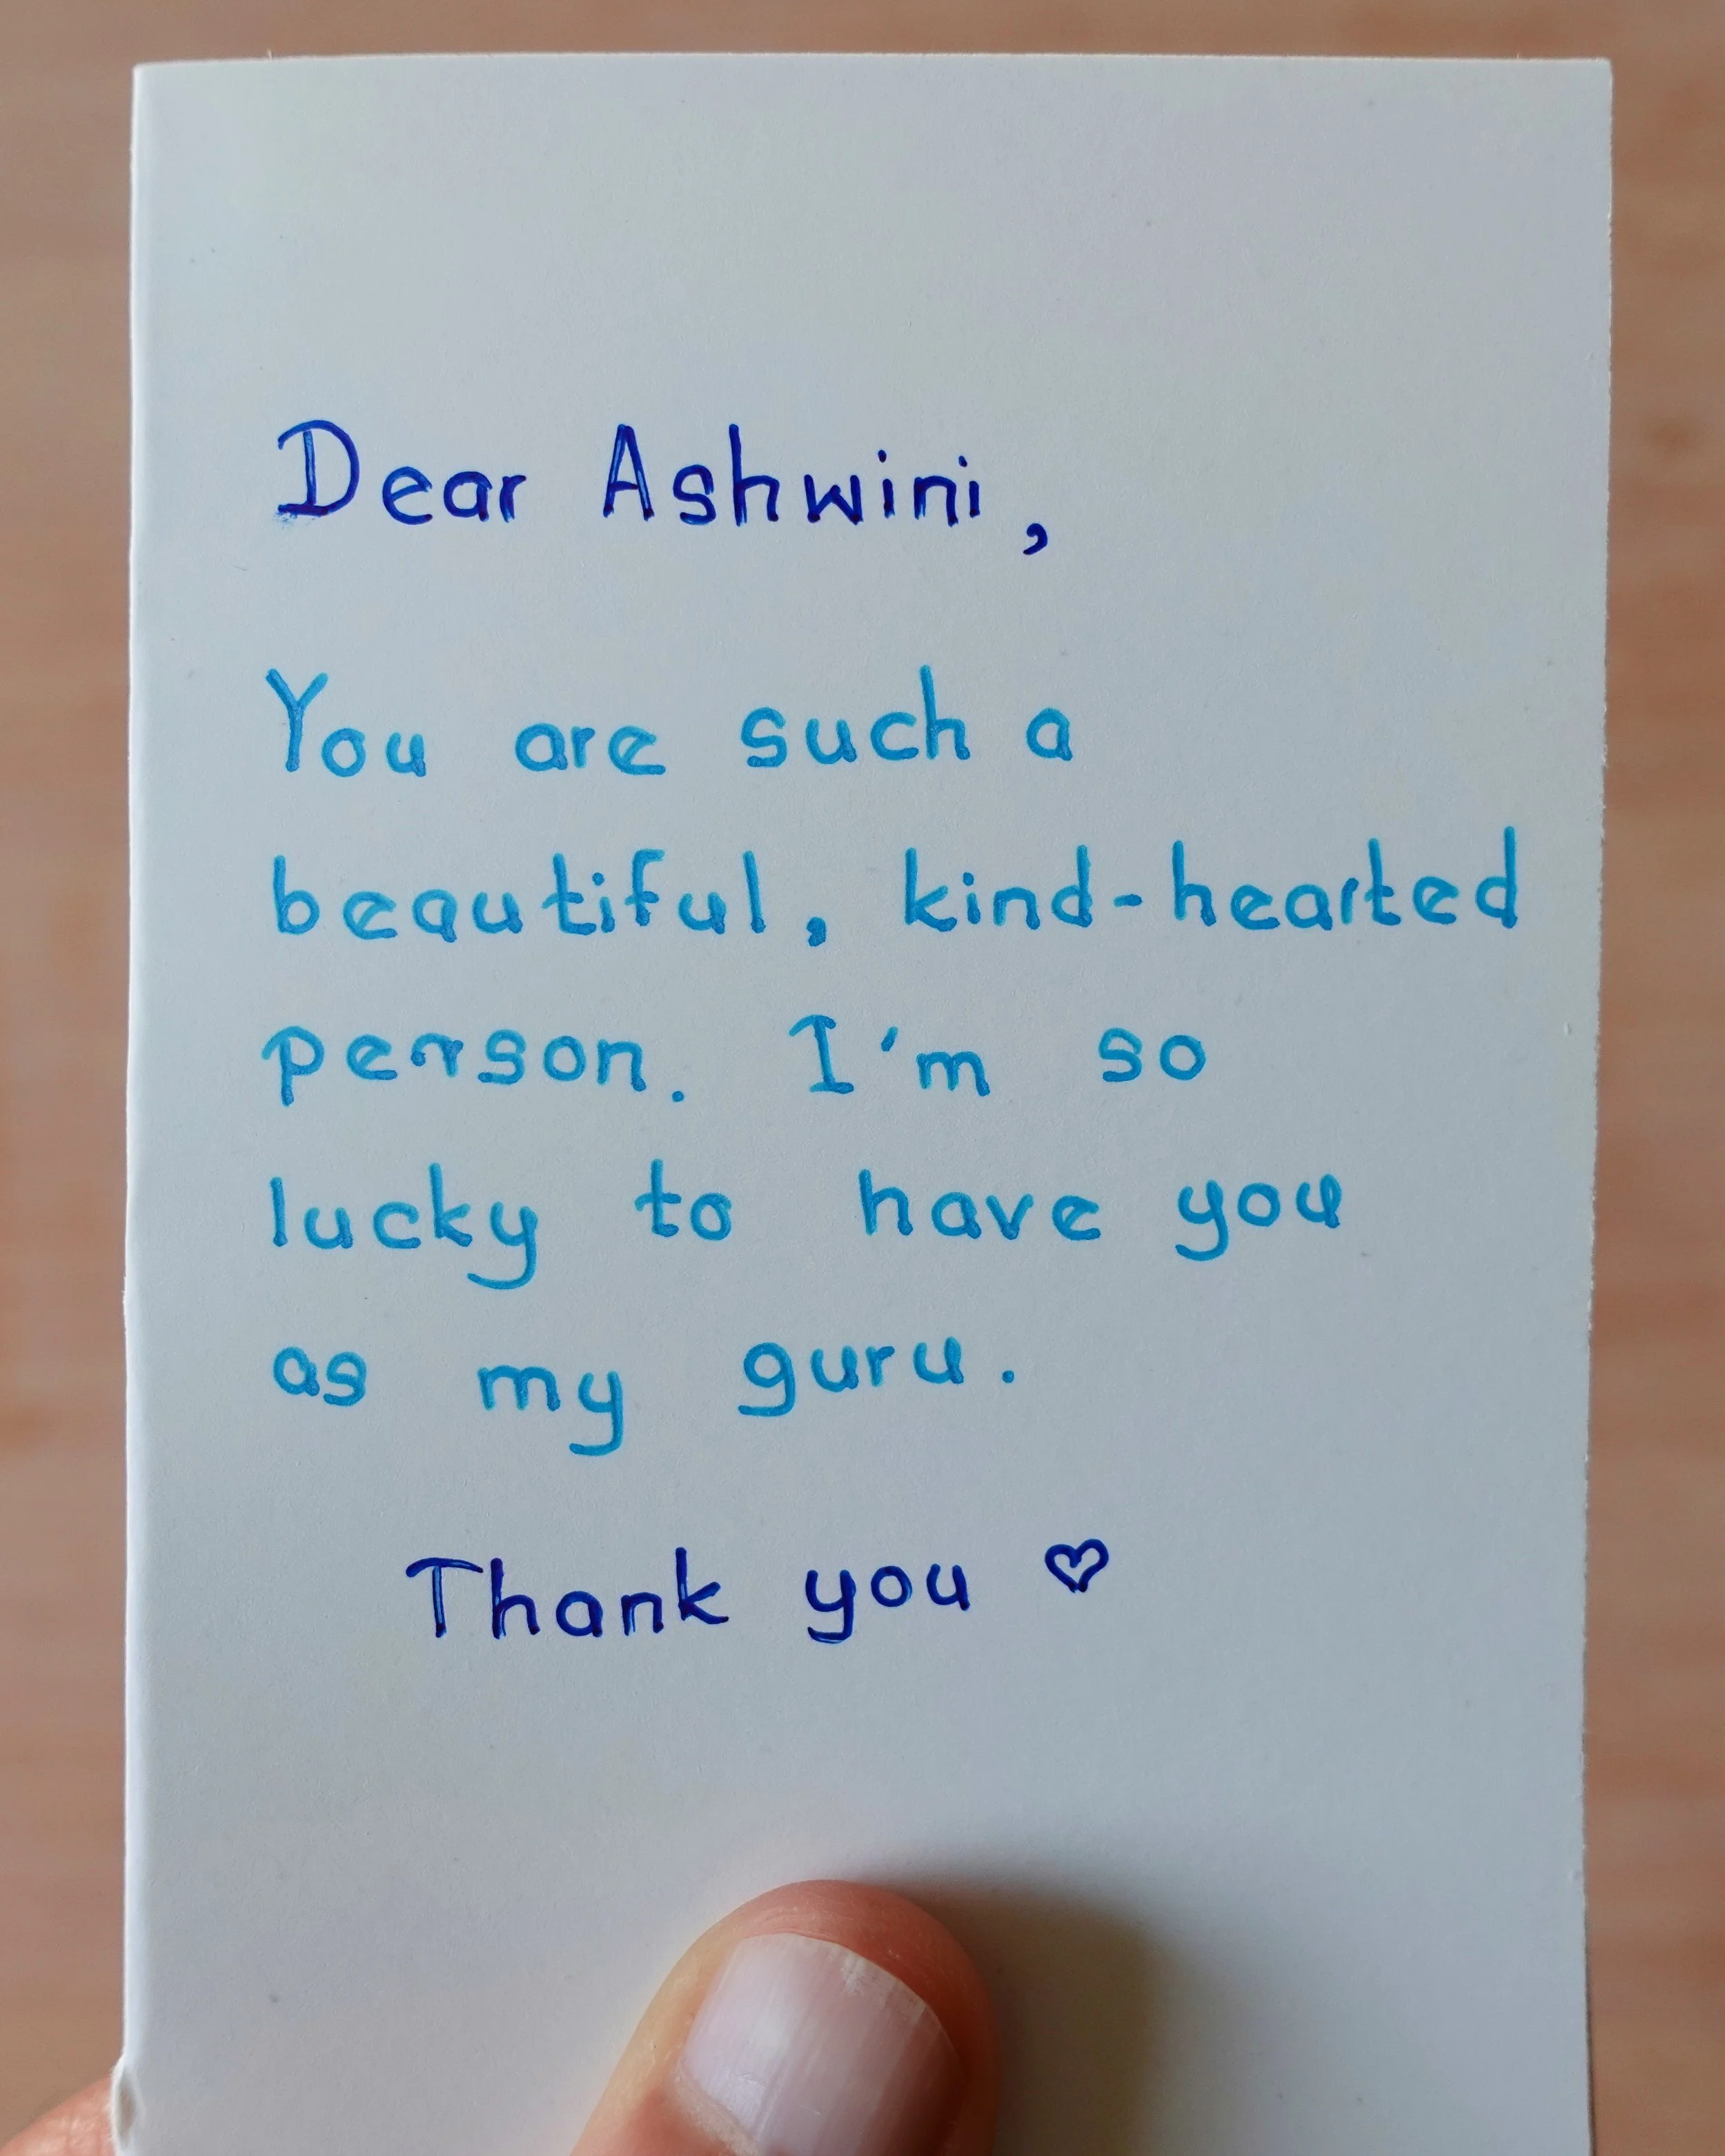 Dear Ashwini,
You are such a
beautiful, kind-hearted
person. I'm so
lucky to have you
as my guru.
Thank you ♡